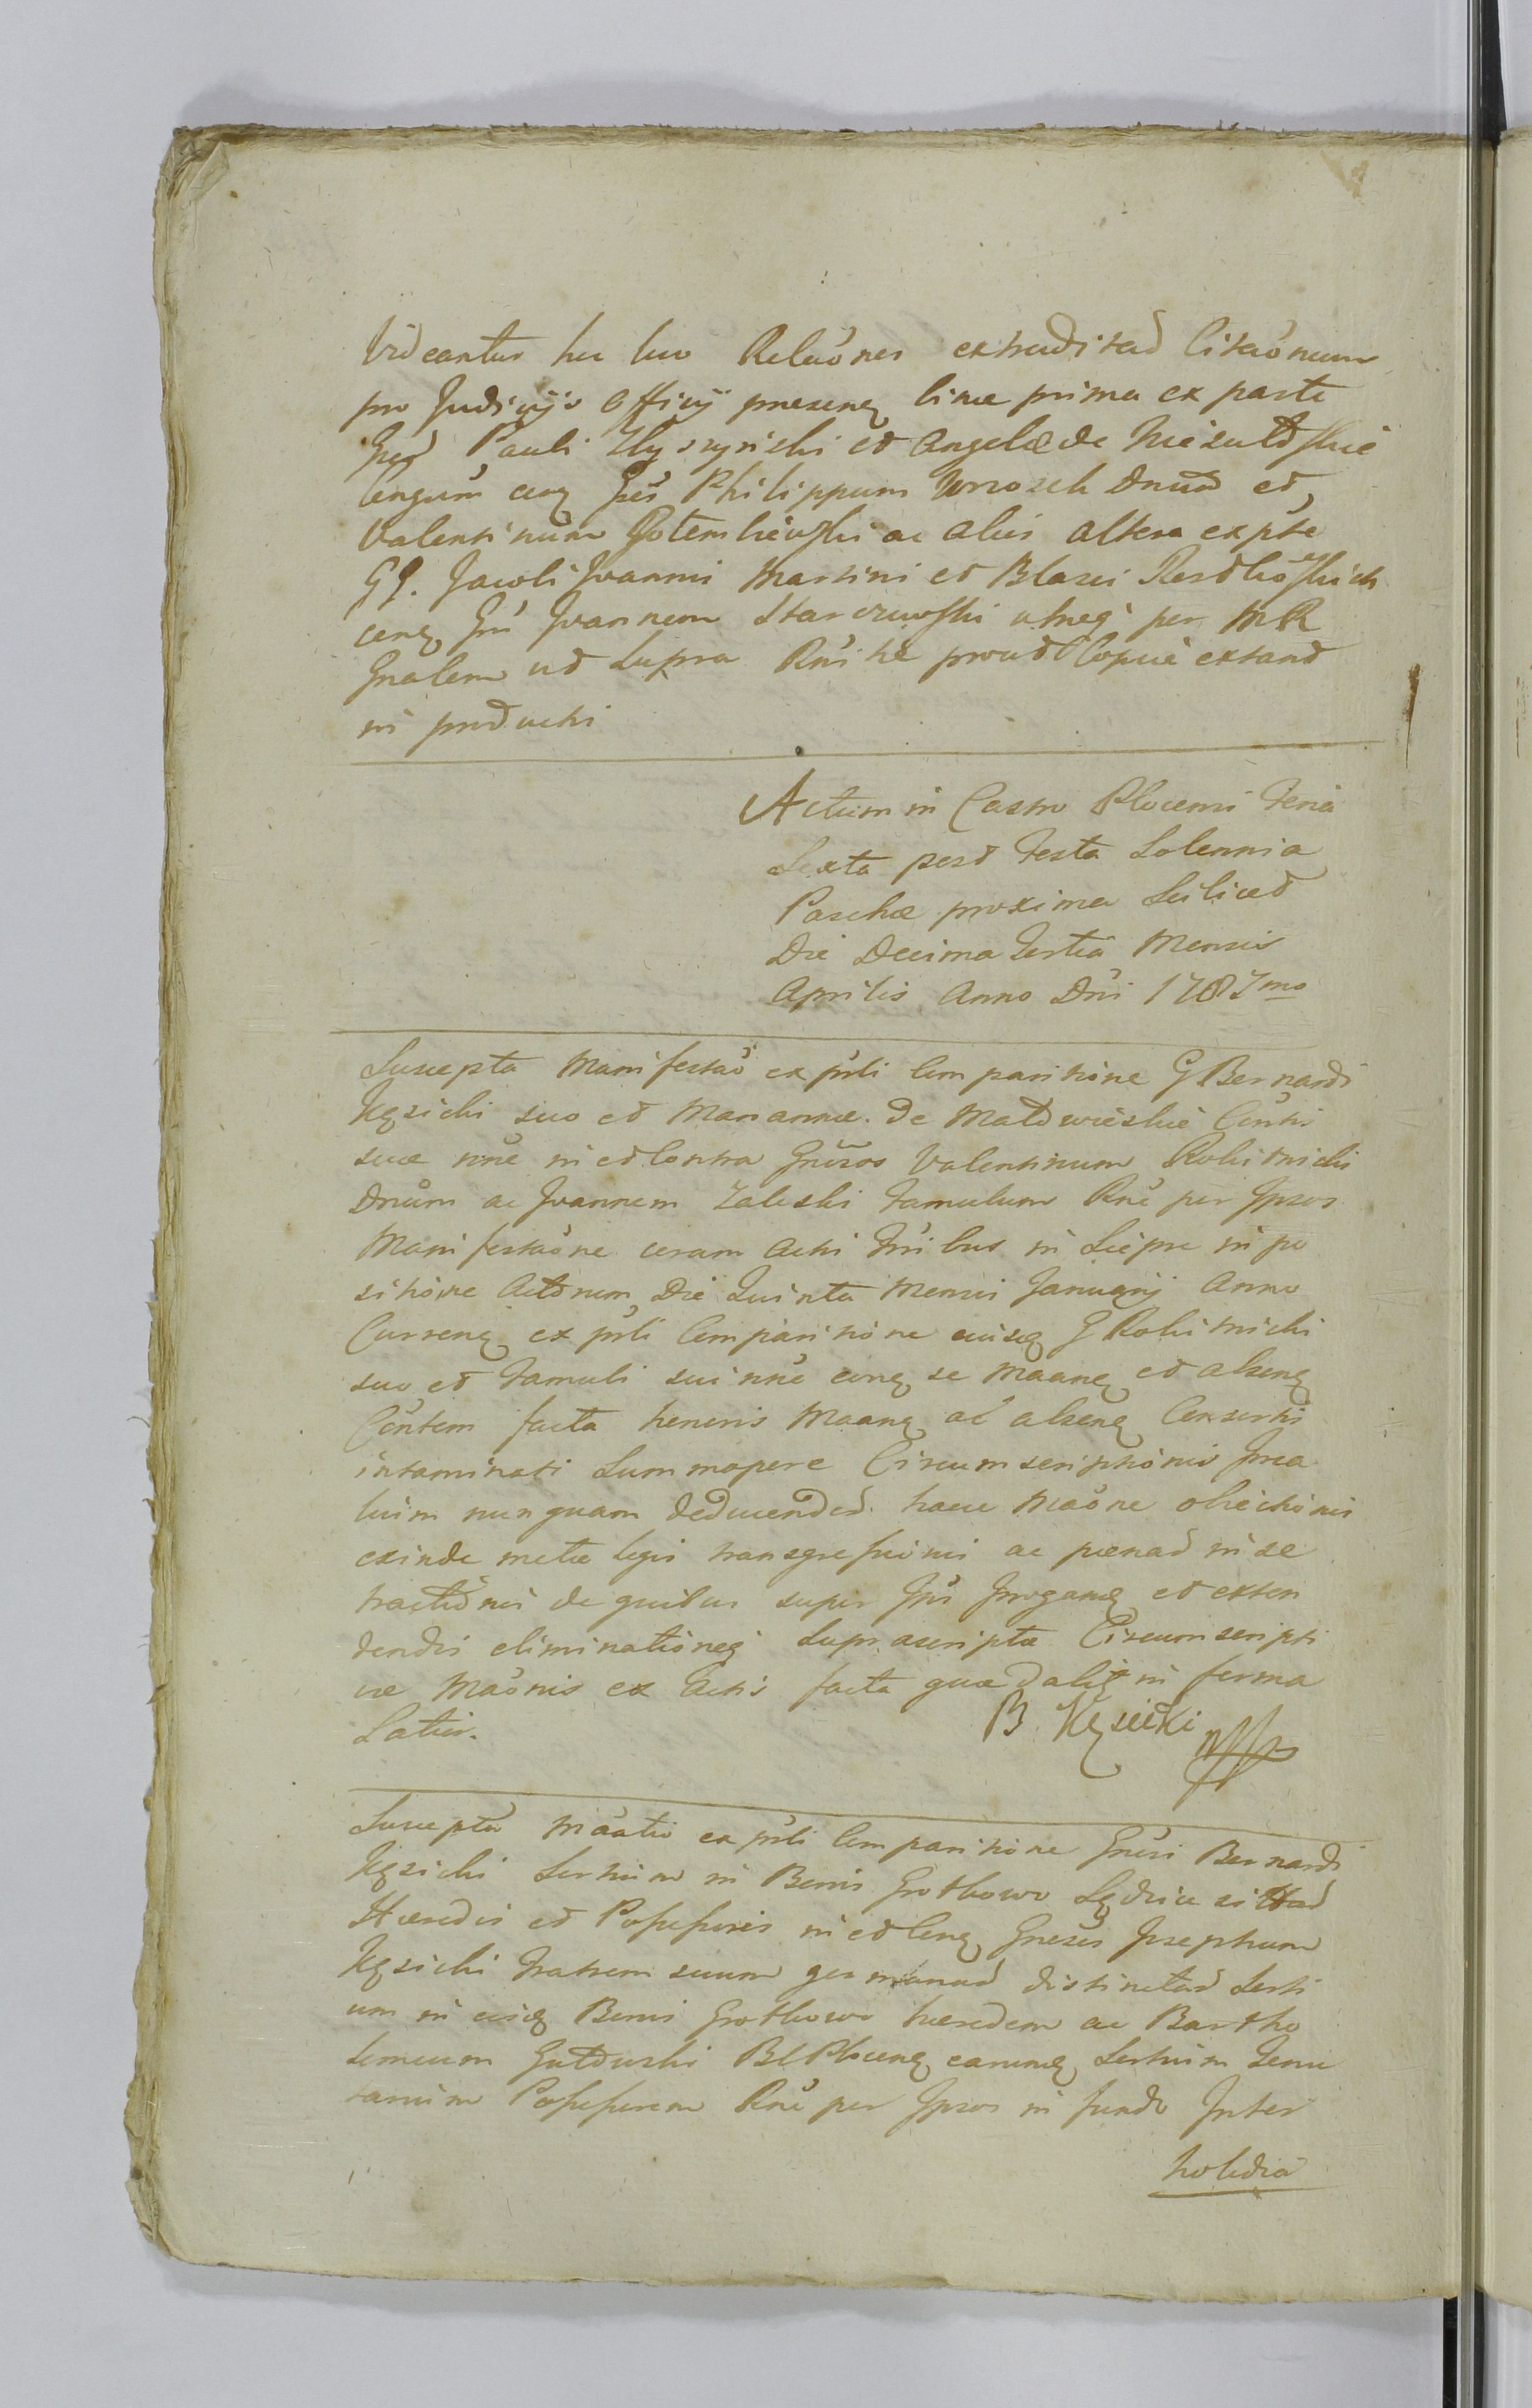 Videantur hic loco Relaōnes extraditar Citaōnum
pro Judicijs Officij presenq binæ prima ex parte
Gnd Pauli et Angelæ de
conq Gnēs Philippum Wrosch Dnum et
Valentinum Potemkiewski ac alios altera ex pte
GG. Jacobi Joannis Martini et Blasei
conq Gn Joannem Starczewski utraq per MR
Gnalem ut supra Rnē prout Copiæ extant
in producti
Actum in Castro Plocensi Feria
Sexta post Festa Solennia
Paschæ proxima Scilicet
Die Decima Tertia Mensis
Aprilis Anno Dni 1787mo
Suscepta Manifestaō ex prli Comparitione G Bernardi
Kęsicki suo et Mariannæ de Conthi
suæ nne in et Contra Gnēsos Valentinum Rokitnicki
Dnum ac Joannem Zaleski Famulum Rnē per Ipsos
Manifestaōne coram Actis Tribus in Sierpc in po
sitione Actorum Die Quinta Mensis Januarij Anno
Currenq ex prli Comparitione eiusq G Rokitnicki
suo et Famuli sui nne conq se Maanq et absenq
Contem facta honoris Maanq ac absenq Consortis
intaminati Summopere Circumscriptionis Prea
luim nunquam deducendar hacce Maōne obiectionis
exinde metæ legis transgressionis ac pœnar in se
tractionis de quibus super Ipsis Irrogandq et exten
dendis eliminationeq Suprascriptæ Circumscripti
væ Maōnis ex Actis facta quæ dabit in forma
Latiu.
B. Kęsicki mpp
Suscepta Maatio ex prli Comparitione Gnēsi Bernardi
Kęsicki Sortium in Bonis Grotkowo sittar
Hæredis et Possessoris in et Conq Gnesos Josephum
Kęsicki Fratrem suum germanum distinctar Sorti
um in eisq Bonis Grotkowo hæredem ac Bartho
lomeum Gutowski BCPlocenq earumq Sortium Tenu
tarium Possessorem Rnē per Ipsos in fundo Inter